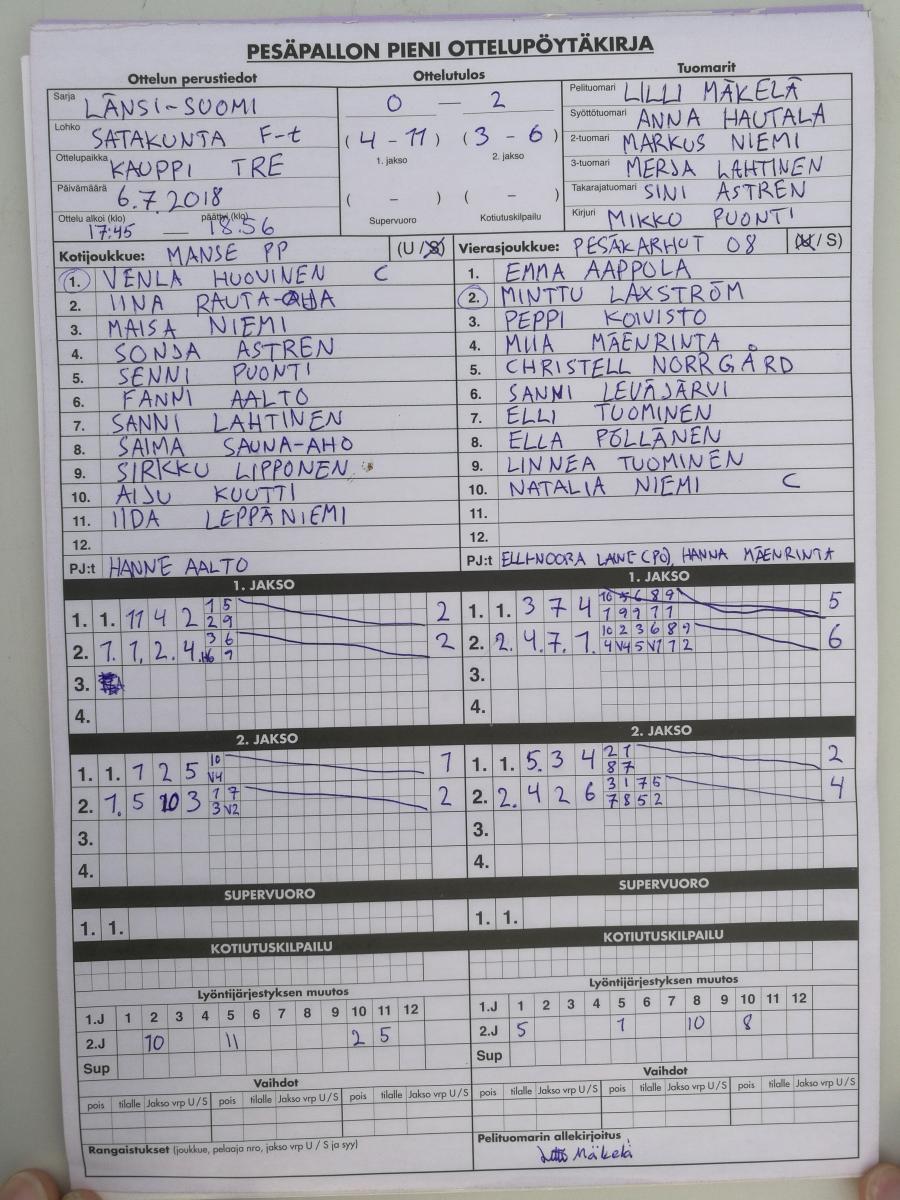 PESÄPALLON PIENI OTTELUPÖYTÄKIRJA
Ottelun perustiedot
Sarja LÄNSI-SUOMI
Lohko SATAKUNTA F-t
Ottelupaikka KAUPPI TRE
Päivämäärä 6.7.2018
Ottelu alkoi (klo) päättyi (klo)
17:45 — 18:56
Ottelutulos
0 — 2
(4 - 11) (3 - 6)
1. jakso 2. jakso
( - ) ( - )
Supervuoro Kotiutuskilpailu
Tuomarit
Pelituomari LILLI MÄKELÄ
Syöttötuomari ANNA HAUTALA
2-tuomari MARKUS NIEMI
3-tuomari MERJA LAHTINEN
Takarajatuomari SINI ASTREN
Kirjuri MIKKO PUONTI
Kotijoukkue: MANSE PP (U / S)
1. VENLA HUOVINEN C
2. IINA RAUTA-AHA
3. MAISA NIEMI
4. SONJA ASTREN
5. SENNI PUONTI
6. FANNI AALTO
7. SANNI LAHTINEN
8. SAIMA SAUNA-AHO
9. SIRKKU LIPPONEN
10. AIJU KUUTTI
11. IIDA LEPPÄNIEMI
12.
PJ:t HANNE AALTO
Vierasjoukkue: PESÄKARHUT 08 (U / S)
1. EMMA AAPPOLA
2. MINTTU LAXSTRÖM
3. PEPPI KOIVISTO
4. MIIA MÄENRINTA
5. CHRISTELL NORRGÅRD
6. SANNI LEVÄJÄRVI
7. ELLI TUOMINEN
8. ELLA PÖLLÄNEN
9. LINNEA TUOMINEN
10. NATALIA NIEMI C
11.
12.
PJ:t ELLI-NOORA LAINE (PÖ), HANNA MÄENRINTA
1. JAKSO
1. 1. 11 4 2 1 5 2
2 9
2. 1. 1. 2. 4. 3 6 2
3.
4.
1. JAKSO
1. 1. 3 7 4 10 5 6 8 9 5
2. 2. 4. 7. 1. 10 2 3 6 8 9 6
4 V4 5 V1 1 2
3.
4.
2. JAKSO
1. 1. 1 2 5 10 1
V4
2. 1. 5 10 3 1 7 2
3 V2
3.
4.
2. JAKSO
1. 1. 5. 3 4 2 1 2
8 7
2. 2. 4 2 6 3 1 7 5 4
7 8 5 2
3.
4.
SUPERVUORO
1. 1.
SUPERVUORO
1. 1.
KOTIUTUSKILPAILU
KOTIUTUSKILPAILU
Lyöntijärjestyksen muutos
1.J 1 2 3 4 5 6 7 8 9 10 11 12
2.J 10 11 2 5
Sup
Lyöntijärjestyksen muutos
1.J 1 2 3 4 5 6 7 8 9 10 11 12
2.J 5 1 10 8
Sup
Vaihdot
pois tilalle Jakso vrp U / S pois tilalle Jakso vrp U / S pois tilalle Jakso vrp U / S
Vaihdot
pois tilalle Jakso vrp U / S pois tilalle Jakso vrp U / S pois tilalle Jakso vrp U / S
Rangaistukset (joukkue, pelaaja nro, jakso vrp U / S ja syy)
Pelituomarin allekirjoitus
Mäkelä